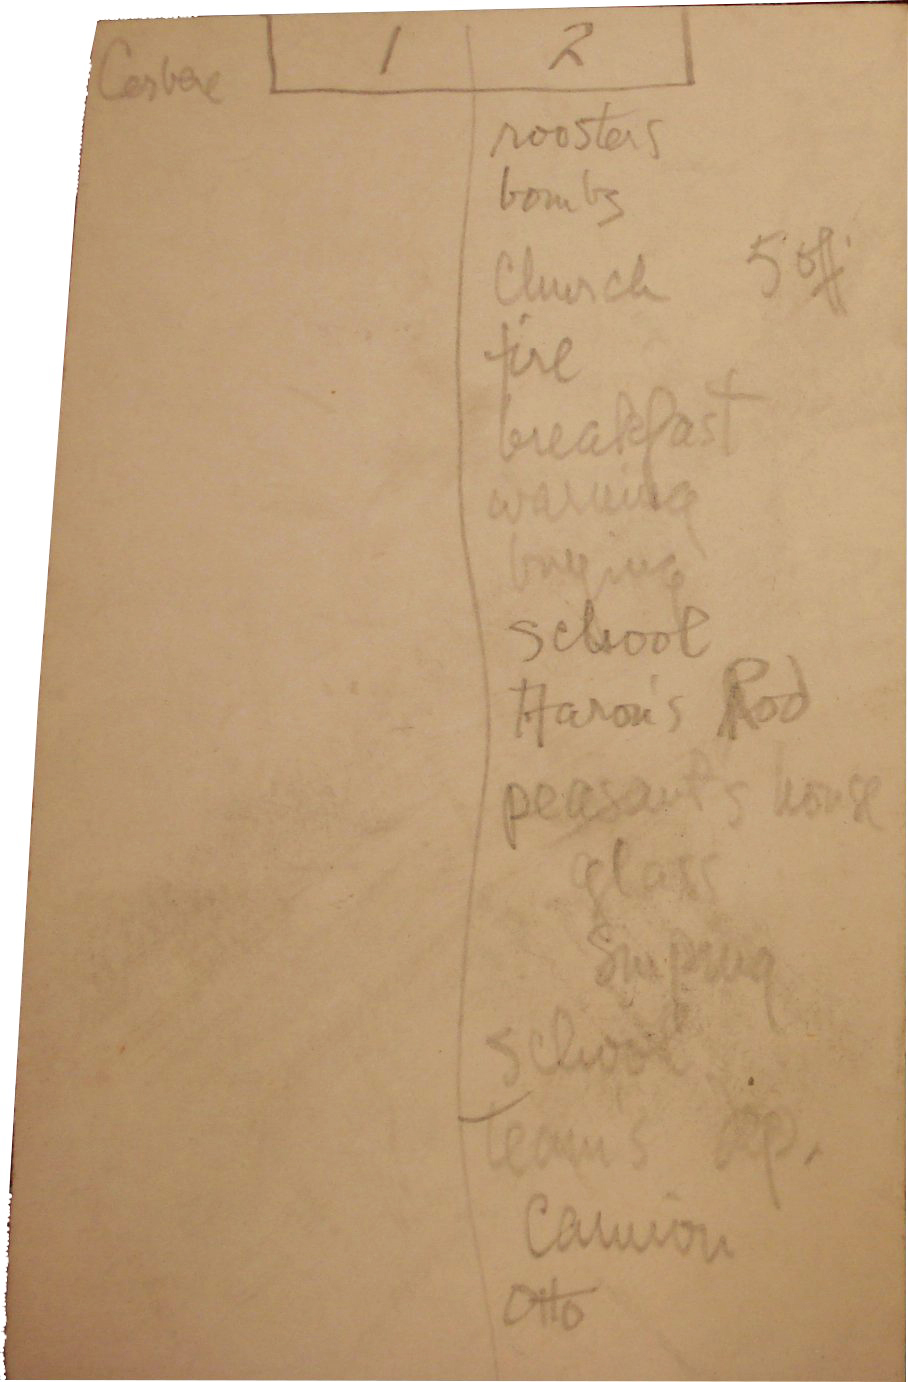 Cerbere
1 2
roosters
bombs
Church 5 off.
fire
breakfast
warning
buying
school
Haron's Rod
peasant's house
glass
school
team's
Camion
Otto